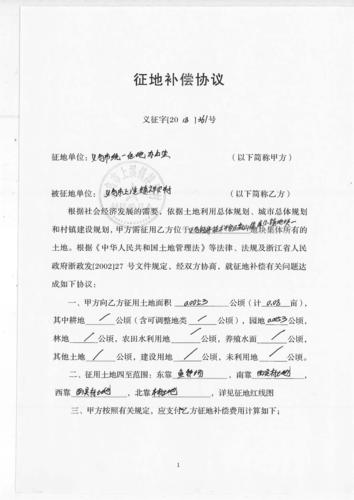 征地补偿协议
义征字[20 13 ] 号
征地单位: 义乌市统一征地办公室 (以下简称甲方)
被征地单位: 义乌市上溪镇 村 (以下简称乙方)
根据社会经济发展的需要、依据土地利用总体规划、城市总体规划
和村镇建设规划,甲方需征用乙方位于 地块集体所有的
土地。根据《中华人民共和国土地管理法》等法律、法规及浙江省人
民政府浙政发[2002]27 号文件规定,经双方协商,就征地补偿有关问题达
成如下协议:
一、甲方向乙方征用土地面积 0.0053 公顷(计 0.08 亩),
其中耕地 / 公顷(含可调整地类 / 公顷),园地 0.0053 公顷,
林地 / 公顷,农田水利用地 / 公顷,养殖水面 / 公顷,
其他土地 / 公顷,建设用地 / 公顷,未利用地 / 公顷。
二、征用土地四至范围:东靠 ,南靠
西靠 ,北靠 ,详见征地红线图
三、甲方按照有关规定,应支付乙方征地补偿费用计算如下;
1